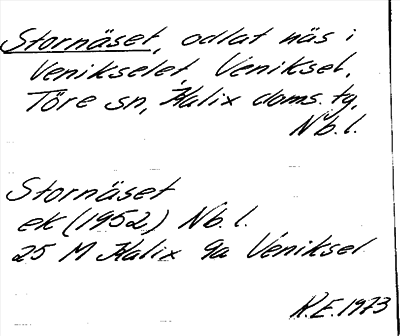 Stornäset, odlat näs i
Venikselet, Veniksel,
Töre sn, Kalix doms. tg,
Nb. l.
Stornäset
ek (1952) Nb. l.
25 M Kalix 9a Veniksel
K.E. 1973